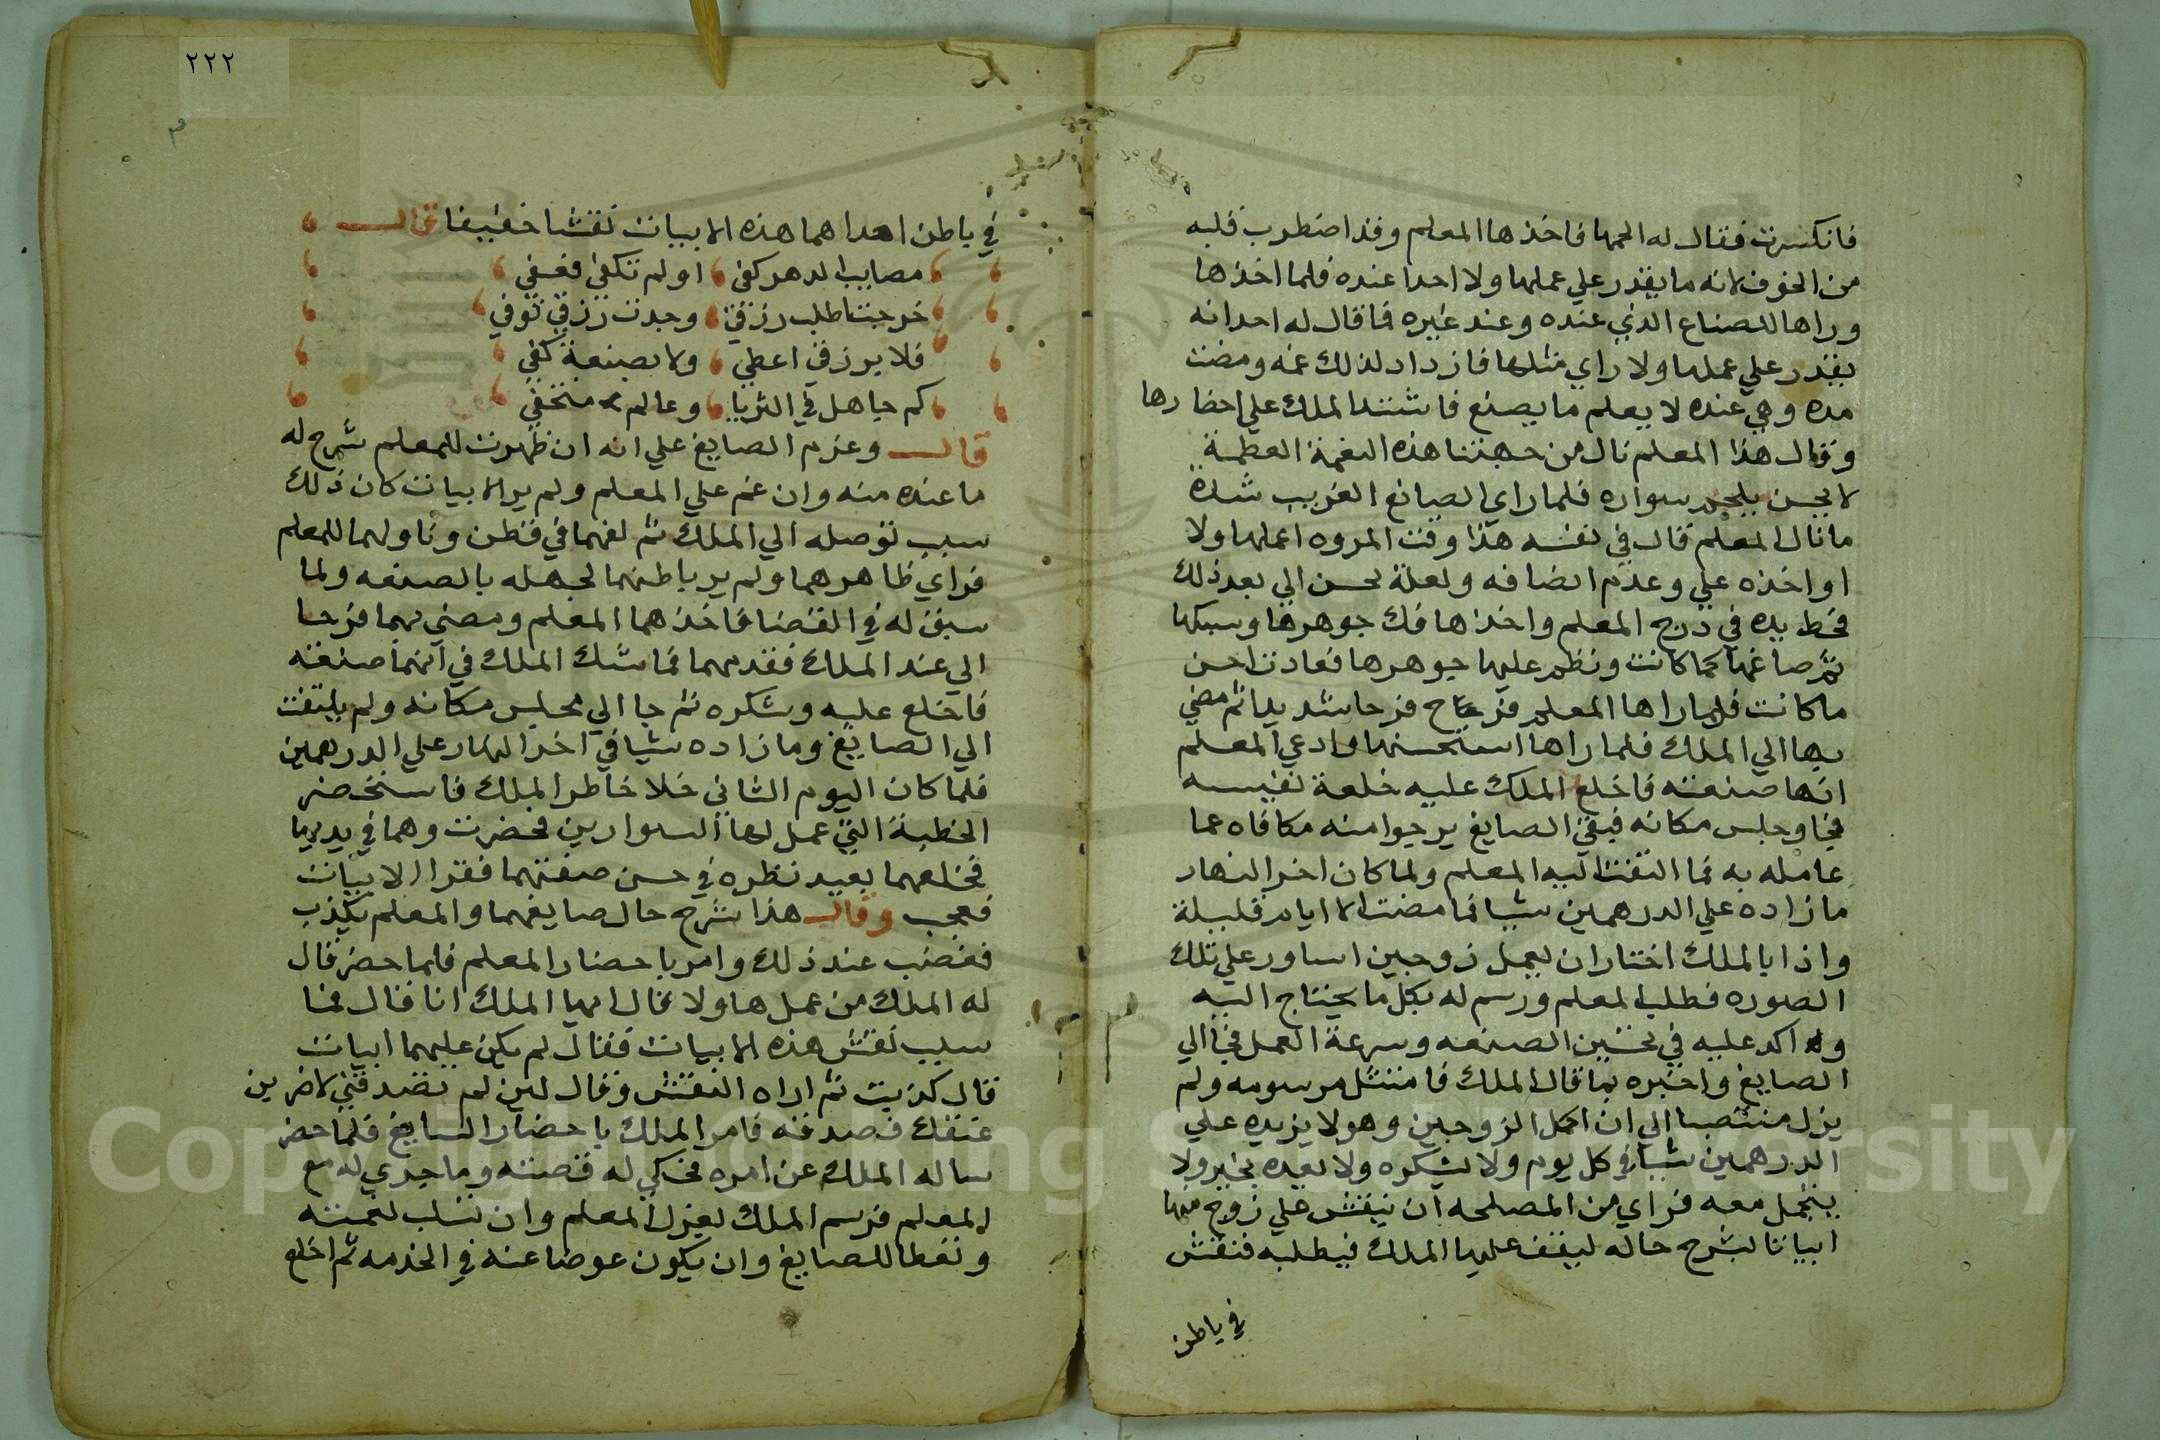 فانكسرت فقال له الحمها فاخذها المعلم وقد اضطرب قلبه
من الخوف لانه ما يقدر علي عملها ولا احدا عنده فلما اخذها
وراها للصناع الذي عنده وعند غيره فما قال له احد انه
يقدر علي عملها ولا راي مثلها فازداد لذلك غمه ومضت
مده وهي عنده لا يعلم ما يصنع فاشتد الملك علي احضارها
وقال هذا المعلم نال من جهتنا هذه النعمة العظمة
لا يحسن يلحم سواره فلما راي الصانع الغريب شدة
ما نال المعلم قال في نفسه هذا وقت المروه اعملها ولا
اواخذه علي وعدم انصافه ولعله يحسن الي بعد ذلك
فحط يده في درج المعلم واخذها فك جوهرها وسبكها
ثم صاغها كما كانت ونظم عليها جوهرها فعادت احسن
ما كانت فلما راها المعلم فرح فرحا شديدا ثم مضي
بها الي الملك فلما راها استحسنها وادعي المعلم
انها صنعته فاخلع الملك عليه خلعة نفيسه
فجا وجلس مكانه فبقي الصايغ يرجوا منه مكافاه عما
عامله به فما التفت اليه المعلم ولما كان اخر النهار
ما زاده علي الدرهمين شيا فما مضت الا ايام قليلة
واذا بالملك اختار ان يعمل زوجين اساور علي تلك
الصوره فطلب المعلم ورسم له بكل ما يحتاج اليه
واكد عليه في تحسين الصنعه وسرعة العمل فجا الي
الصايغ واخبره بما قال الملك فامتثل مرسومه ولم
يزل منتصبا الي ان اكمل الزوجين وهو لا يزيده علي
الدرهمين شيا في كل يوم ولا يشكره ولا يعيده بخير ولا
يتجمل معه فراي من المصلحه ان ينقش علي زوج منها
ابياتا يشرح حاله ليقف عليها الملك فيطلبه فنقش
في باطن
٢٢٢
في باطن احداهما هذه الابيات نقشا خفيفا قال
مصايب الدهر كفي او لم تكفي فعفي
خرجت اطلب رزقي وجدت رزقي توفي
فلا برزقي اعطي ولا بصنعة كفي
كم جاهل في الثريا وعالم متخفي
قال وعزم الصايغ علي انه ان ظهرت للمعلم شرح له
ما عنده منه وان عم علي المعلم ولم ير الابيات كان ذلك
سبب توصله الي الملك ثم لفهما في قطن وناولهما للمعلم
فراي ظاهرهما ولم ير باطنهما لجهله بالصنعه ولما
سبق له في القضا فاخذهما المعلم ومضي بهما فرحا
الي عند الملك فقدمهما فما شك الملك في انهما صنعته
فاخلع عليه وشكره ثم جا الي مجلس مكانه ولم يلتفت
الي الصايغ وما زاده شيا في اخر النهار علي الدرهمين
فلما كان اليوم الثاني خلا خاطر الملك فاستحضر
الخطية التي عمل لها السوارين فحضرت وهما في يديها
فخلعهما يعيد نظره في حسن صنعتهما فقرا الابيات
فعجب وقال هذا شرح حال صايغهما والمعلم يكذب
فغضب عند ذلك وامر باحضار المعلم فلما حضر قال
له الملك من عمل هاولا قال ايها الملك انا قال فما
سبب نقش هذه الابيات فقال لم يكن عليهما ابيات
قال كذبت ثم اراه النقش وقال لين لم تصدقني لاضربن
عنقك فصدقه فامر الملك باحضار الصايغ فلما حضر
ساله الملك عن امره فحكي له قصته وما جري له مع
المعلم فرسم الملك بعزل المعلم وان تسلب نعمته
وتعطا للصايغ وان يكون عوضا عنه في الخدمه ثم اخلع
Copyright © King Saud University